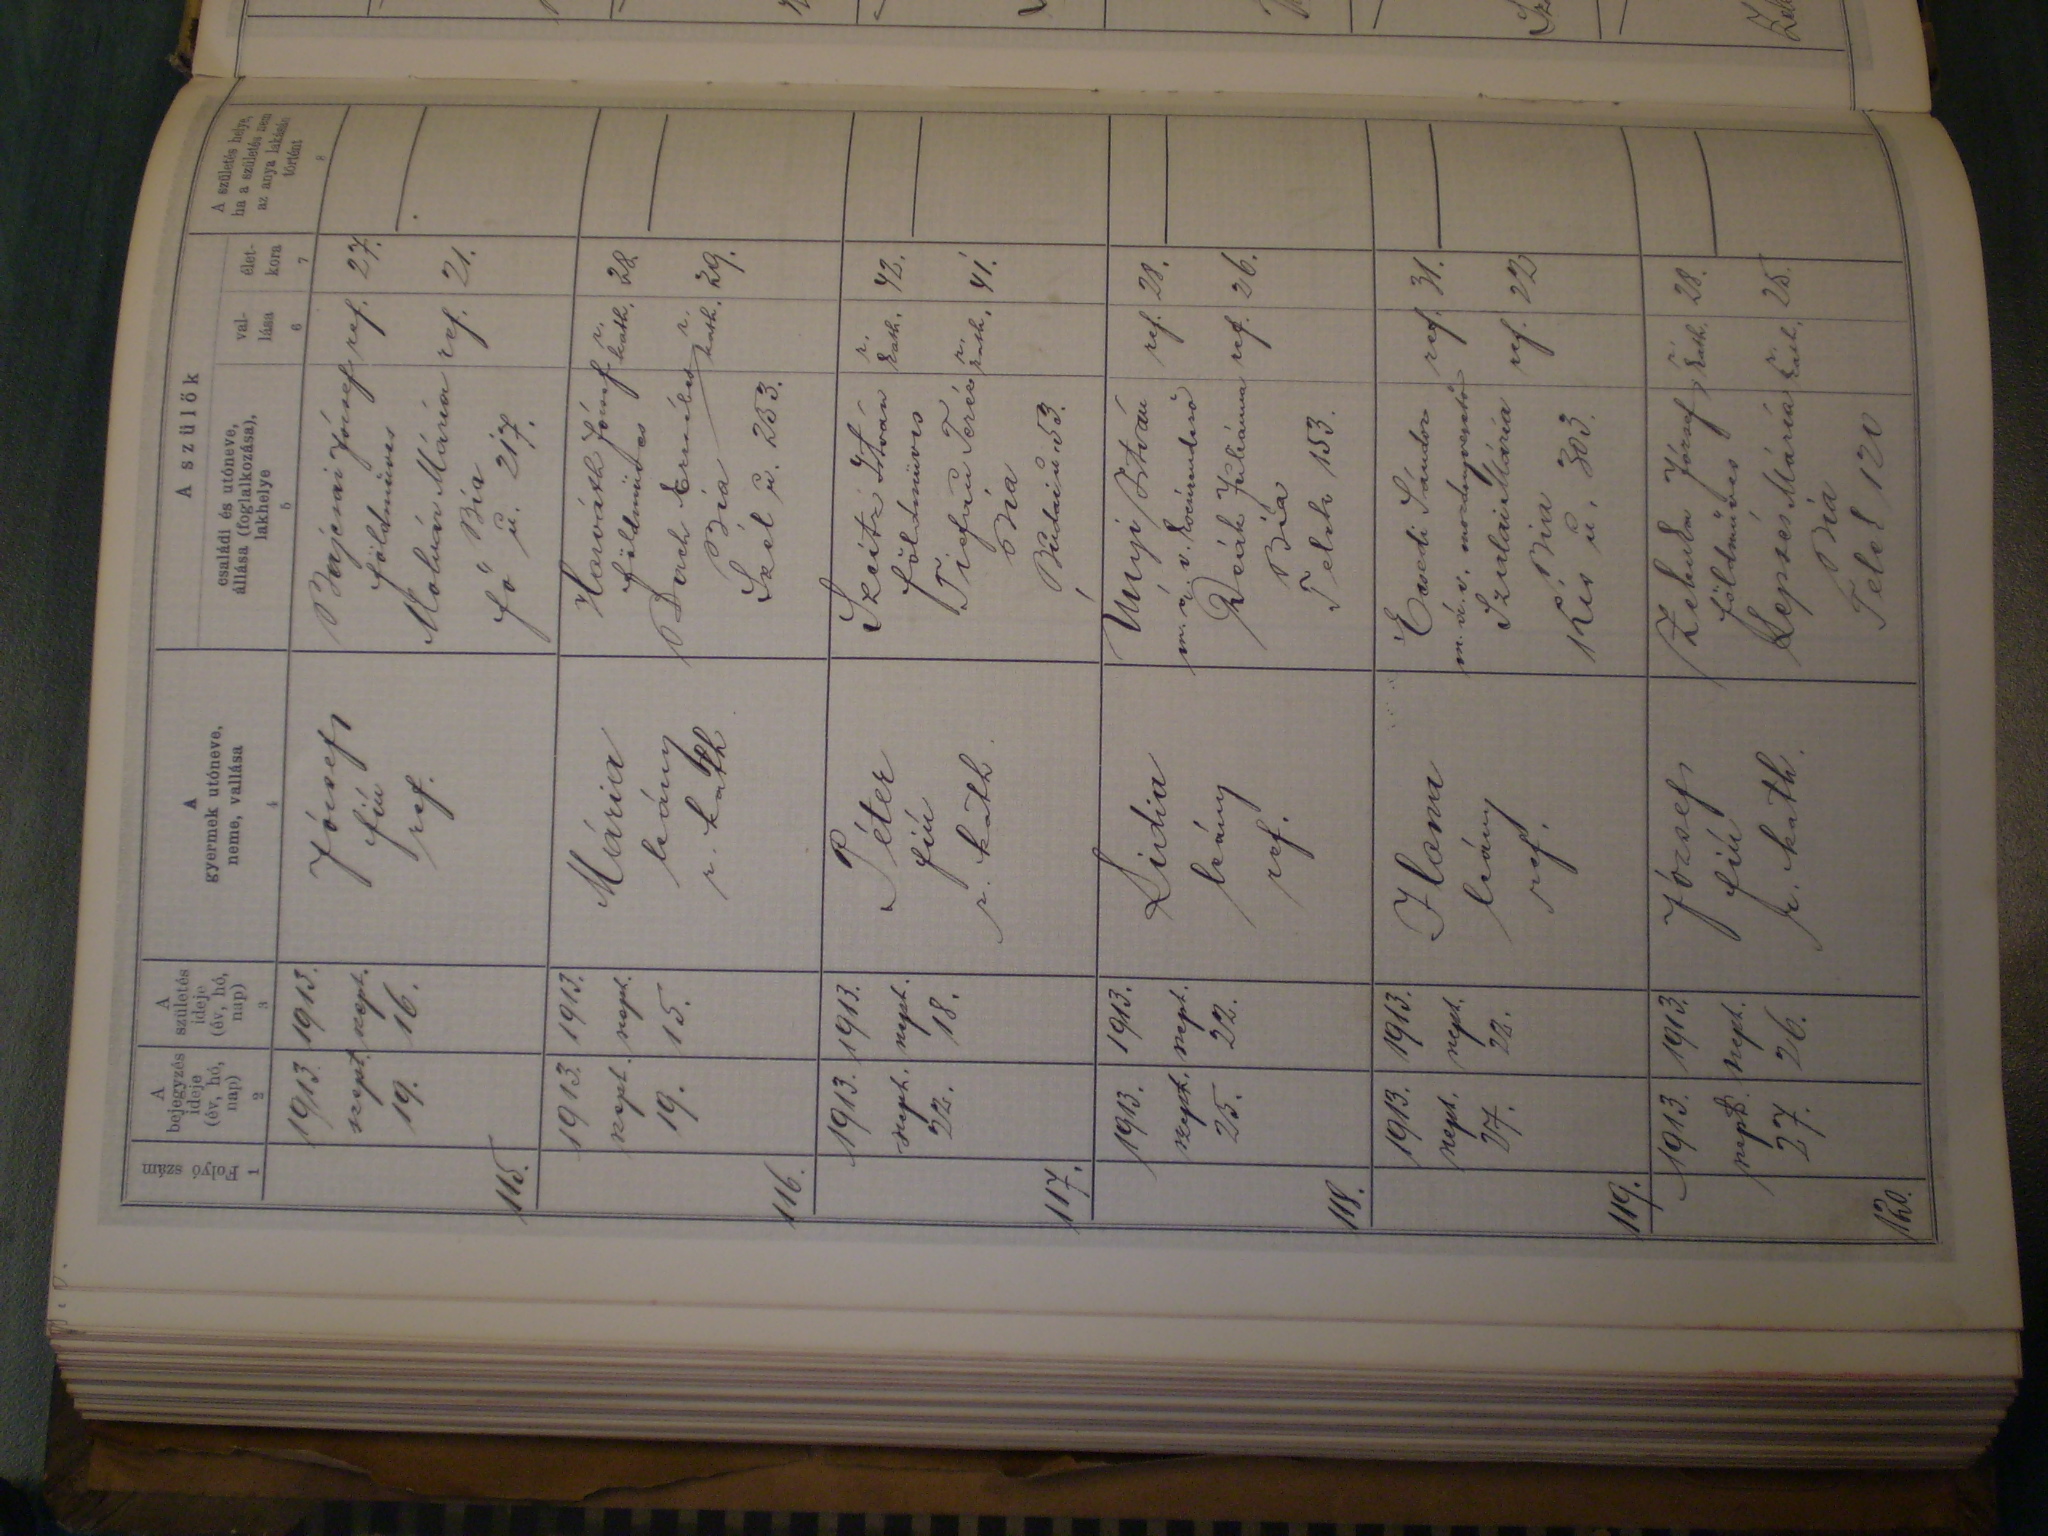 A szülők
Folyó szám
A
bejegyzés
ideje
(év, hó,
nap)
A
születés
ideje
(év, hó,
nap)
A
gyermek utóneve,
neme, vallása
családi és utóneve,
állása (foglalkozása),
lakhelye
val-
lása
élet-
kora
A születés helye,
ha a születés nem
az anya lakásán
történt
1
2
3
4
5
6
7
8
115.
1913.
szept.
19.
1913.
szept.
16.
József
fiú
ref.
József
földműves
Molnár Mária
Bia
Fő u. 217.
ref. 27.
ref. 21.
116.
1913.
szept.
19.
1913.
szept.
15.
Mária
leány
r. kath
Horváth József
földműves
Bia
Szél u. 253.
r. kath. 28
r. kath. 29.
117.
1913.
szept.
22.
1913.
szept.
18.
Péter
fiú
r. kath.
Szeitz István
földműves
Bia
Budai u. 53.
r. kath. 42.
r. kath. 41.
118.
1913.
szept.
25.
1913.
szept.
22.
Lidia
leány
ref.
Unyi István
m. á. v.
Deák Juliánna
Bia
Telek 153.
ref. 28.
ref. 26.
119.
1913.
szept.
27.
1913.
szept.
22.
Ilona
leány
ref.
Ecsedi Sándor
m. á. v. mozdonyvezető
Szalai Mária
Bia
Kis u. 303.
ref. 31.
ref. 22
120.
1913.
szept.
27.
1913.
szept.
26.
József
fiú
r. kath.
József
földműves
Lepsés Mária
Bia
Telek 120
r. kath. 28.
r. kath. 25.